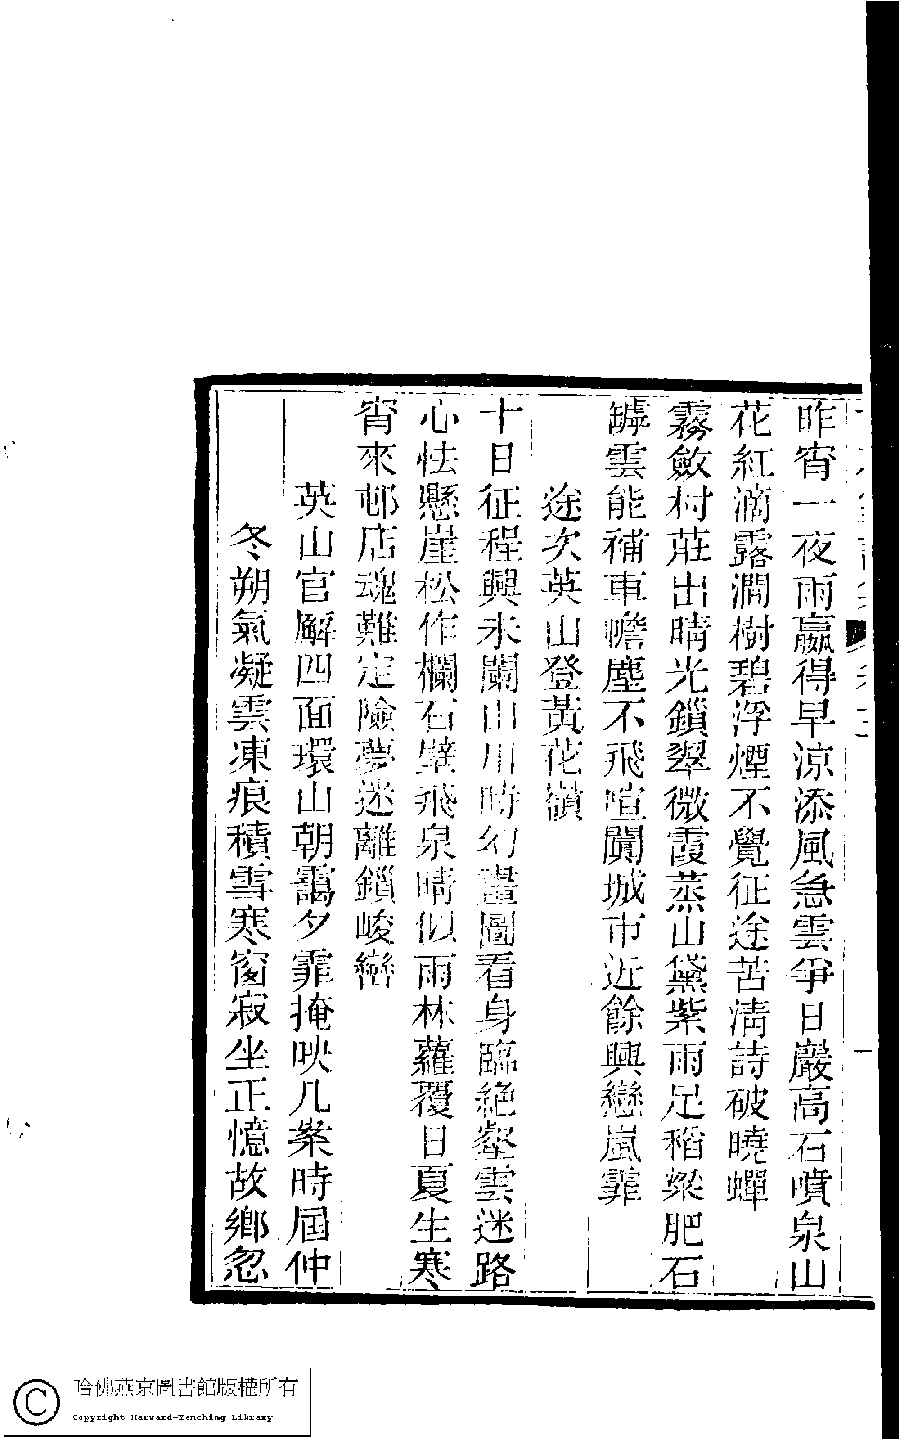 昨宵一夜雨贏得早涼添風急雲爭日巖高石噴泉山
花紅滴露澗樹碧浮煙不覺征途苦清詩破曉蟬
霧斂村莊出晴光鎖翠微霞蒸山黛紫雨足稻粱肥石
罅雲能補車幨塵不飛喧闐城市近餘興戀嵐霏
途次英山登黃花嶺
十日征程興未闌山川時幻畫圖看身臨絕壑雲迷路
心怯懸崖松作欄石壁飛泉晴似雨林蘿覆日夏生寒
宵來邨店魂難定險夢迷離鎖峻巒
英山官廨四面環山朝靄夕霏掩映几案時屆仲
冬朔氣凝雲凍痕積雪寒窗寂坐正憶故鄉忽
哈佛燕京圖書館版權所有
Copyright Harvard-Yenching Library